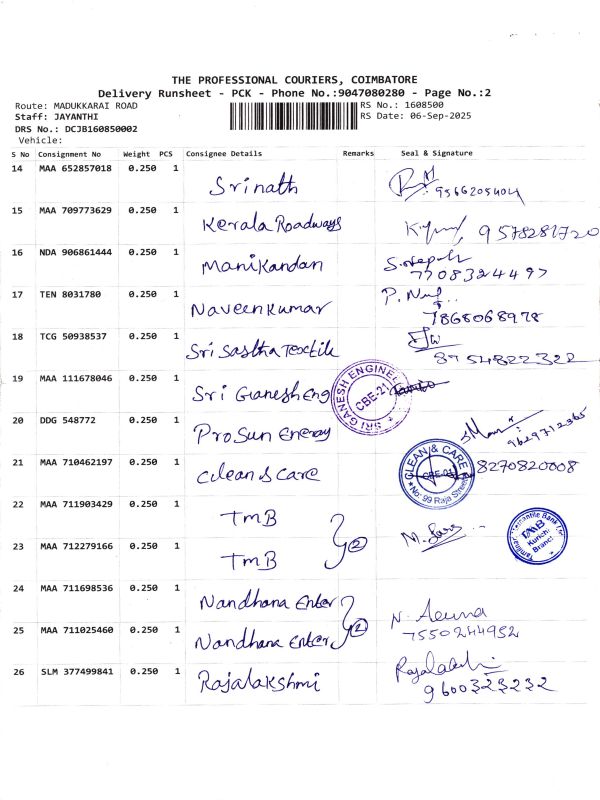 THE PROFESSIONAL COURIERS, COIMBATORE
Delivery Runsheet - PCK - Phone No.:9047080280 - Page No.:2
Route: MADUKKARAI ROAD RS No.: 1608500
Staff: JAYANTHI RS Date: 06-Sep-2025
DRS No.: DCJB160850002
Vehicle:
S No Consignment No Weight PCS Consignee Details Remarks Seal & Signature
14 MAA 652857018 0.250 1 Srinath 9566205404
15 MAA 709773629 0.250 1 Kerala Roadways 9578281720
16 NDA 906861444 0.250 1 Manikandan
7708324497
17 TEN 8031780 0.250 1 Naveenkumar
7868068978
18 TCG 50938537 0.250 1 Sri Sastha Textile
8754822322
19 MAA 111678046 0.250 1 Sri Ganesh Eng SRI GANESH ENGINEE CBE-21
20 DDG 548772 0.250 1 ProSun Energy 9629712365
21 MAA 710462197 0.250 1 Clean & Care CLEAN & CARE CBE-21 No: 99 Raja Street 8270820008
22 MAA 711903429 0.250 1 TMB
23 MAA 712279166 0.250 1 TMB 2 Tamilnad Mercantile Bank Ltd TMB Kurichi Branch
24 MAA 711698536 0.250 1 Nandhana Enter
25 MAA 711025460 0.250 1 Nandhana Enter 2 N. Aruna
7550244952
26 SLM 377499841 0.250 1 Rajalakshmi Rajalakshmi
9600323232